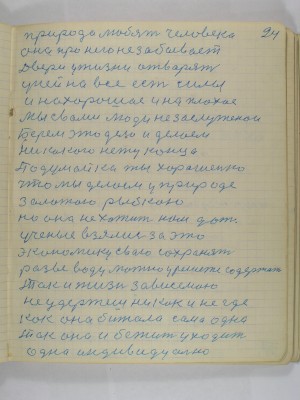 24
природа любят человека
она про него незабывает
Двери ужизни отварят
уней на все ест силы
и нахорошае и на плохае
мы свами люди незаслуженои
берем это дело и делоем
никакого нету конца
Подумай ка ты хорошенко
что мы делоем у природе
Золотою рыбкою
но она нехотит нам дат.
ученые взялис за это
экономику сваю сохронят
разве воду можно удержат
так и жизн зависмаю
неудержеш никак и не где
как она битала сама одна
так она и бежит уходит
одна индивидуално